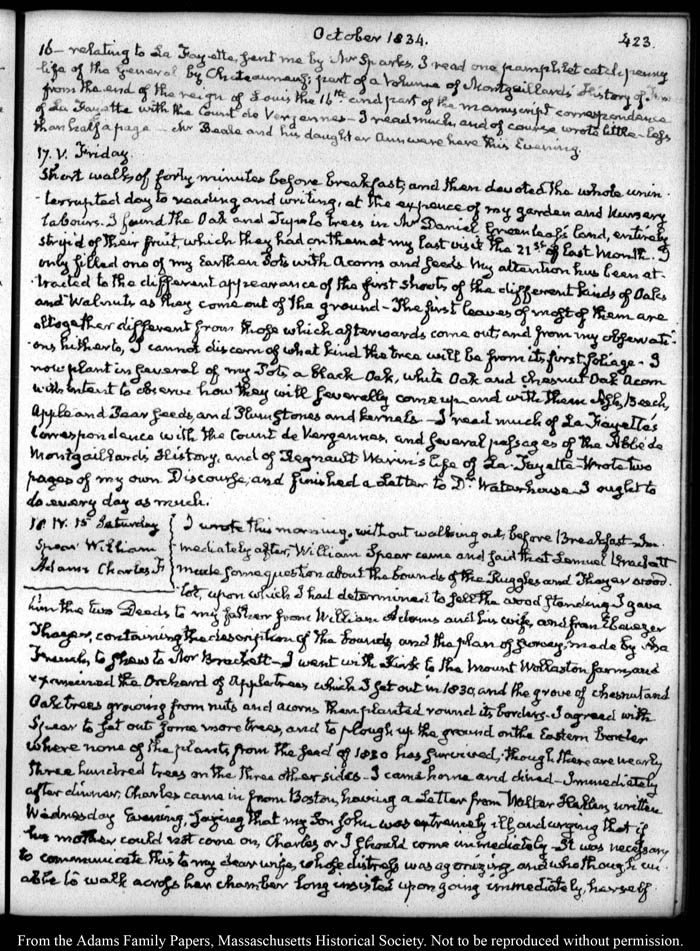 October 1834.
423.
16— relating to La Fayette, sent me by Mr Sparks, I read one pamphlet catchpenny
life of the General by Chateauneuf; part of a Volume of Montgaillard's History of
from the end of the reign of Louis the 16th and part of the manuscript correspondence
of La Fayette with the Count de Vergennes— I read much, and of course wrote little— less
than half a page— Mr Beale and his daughter Ann were here this Evening.
17. V. Friday.
Short walk of forty minutes before breakfast; and then devoted the whole unin-
-terrupted day to reading and writing, at the expence of my garden and Nursery
labours. I found the Oak and Tupelo trees in Mr Daniel Greenleaf's land, entirely
strip'd of their fruit, which they had on them at my last visit the 21st of last Month. I
only filled one of my Earthen Pots with Acorns and seeds. My attention has been at-
-tracted to the different appearance of the first shoots of the different kinds of Oaks
and Walnuts as they come out of the ground— The first leaves of most of them are
altogether different from those which afterwards come out, and from my observati-
-ons hitherto, I cannot discern of what kind the tree will be from its first foliage— I
now plant in several of my Pots a black Oak, white Oak and chesnut Oak Acorn
with intent to observe how they will severally come up and with them
Apple and Pear seeds, and Plumstones and kernels— I read much of La Fayette's
Correspondence with the Count de Vergennes, and several passages of the Abbé de
Montgaillard's History, and of Regnault Warin's life of La Fayette— Wrote two
pages of my own Discourse; and finished a Letter to Dr Waterhouse— I ought to
do every day as much.
18. IV. 15. Saturday
Spear William
Adams Charles F.
I wrote this morning, without walking out, before Breakfast— Im-
mediately after, William Spear came and said that Lemuel Brackett
made some question about the bounds of the Ruggles and Thayer wood-
lot, upon which I had determined to sell the wood standing— I gave
him the two Deeds to my father from William Adams and his wife, and from Ebenezer
Thayer, containing the description of the bounds, and the plan of survey, made by Asa
French, to shew to Mr Brackett— I went with Kirk to the Mount Wollaston farm, and
examined the Orchard of Appletrees which I set out in 1830, and the grove of chesnut and
Oak trees growing from nuts and acorns then planted round its borders— I agreed with
Spear to set out some more trees, and to plough up the ground on the Eastern Border
where none of the plants from the seed of 1830 has survived; though there are nearly
three hundred trees on the three other sides— I came home and dined— Immediately
after dinner, Charles came in from Boston, having a Letter from Walter Hellen, written
Wednesday Evening, saying that my Son John was extremely ill, and urging that if
his mother could not come on, Charles or I should come immediately— It was necessary
to communicate this to my dear wife, whose distress was agonizing, and who though un-
able to walk across her chamber long insisted upon going immediately, herself
From the Adams Family Papers, Massachusetts Historical Society. Not to be reproduced without permission.